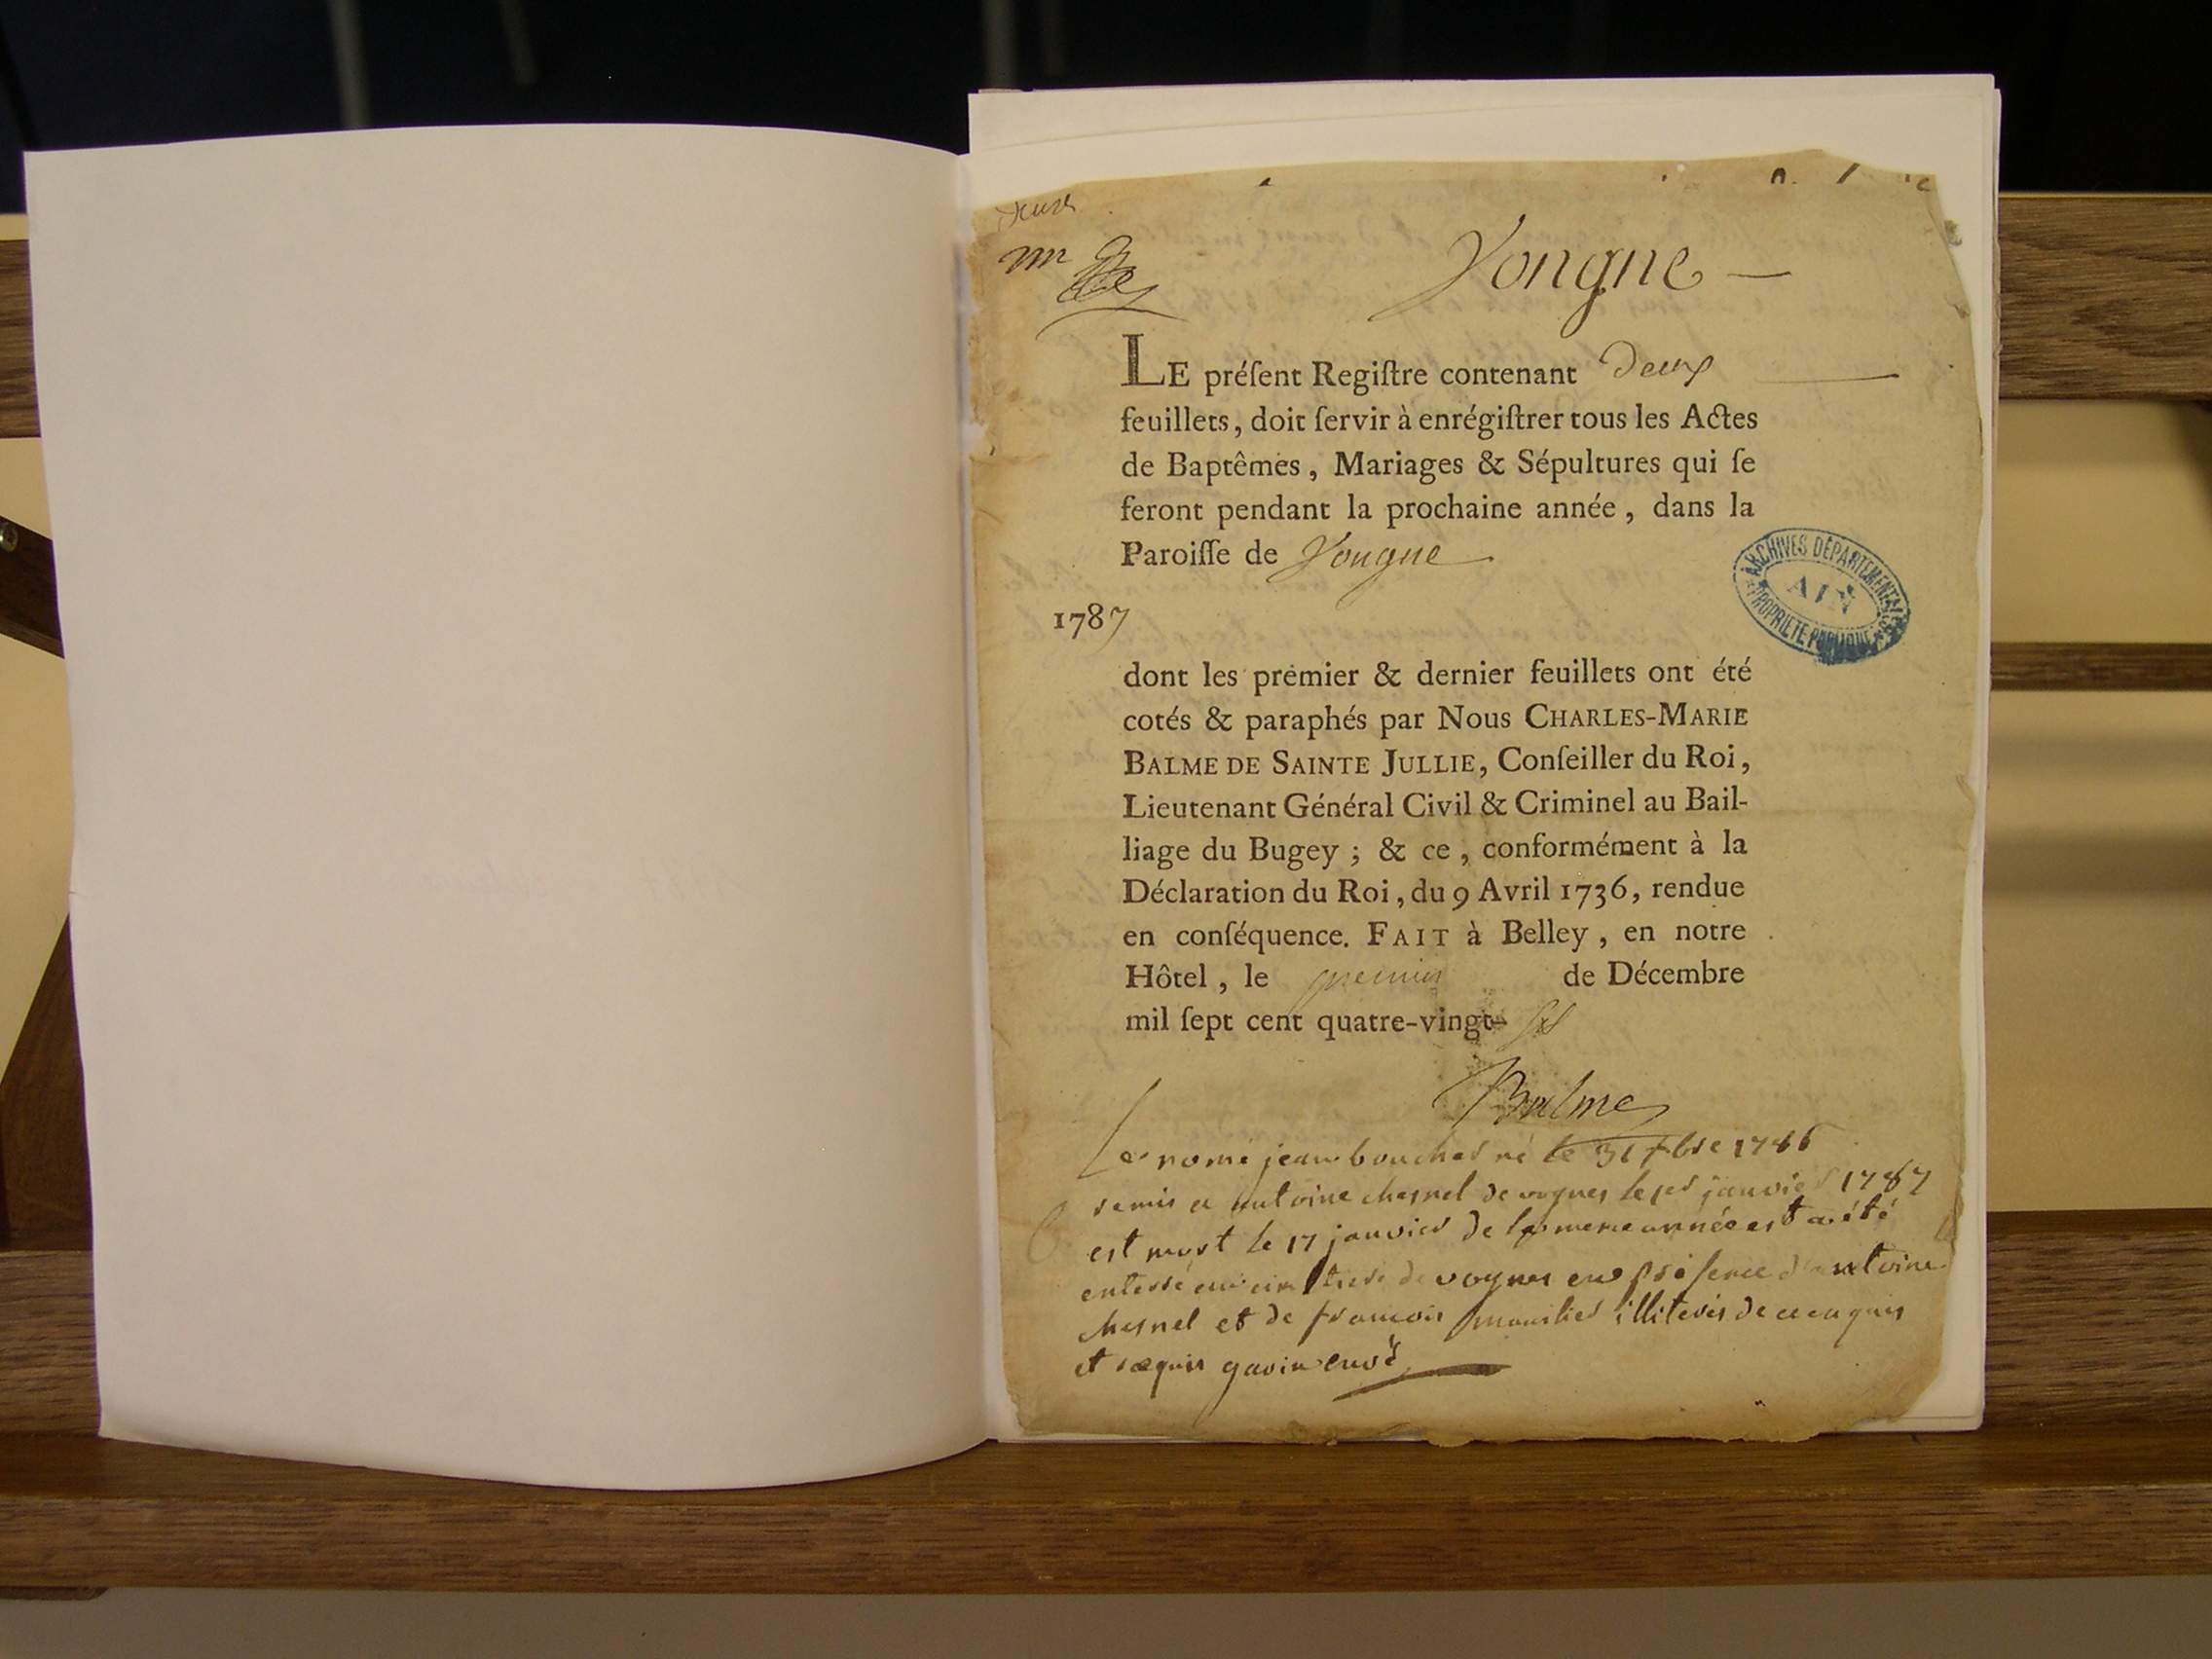 Vongne —
LE préſent Regiſtre contenant Deux
feuillets, doit ſervir à enrégiſtrer tous les Actes
de Baptêmes, Mariages & Sépultures qui ſe
feront pendant la prochaine année, dans la
Paroiſſe de Vongne
ARCHIVES DÉPARTEMENTALES
AIN
PROPRIÉTÉ PUBLIQUE
1787
dont les premier & dernier feuillets ont été
cotés & paraphés par Nous CHARLES-MARIE
BALME DE SAINTE JULLIE, Conſeiller du Roi,
Lieutenant Général Civil & Criminel au Bail-
liage du Bugey ; & ce, conformément à la
Déclaration du Roi, du 9 Avril 1736, rendue
en conſéquence. FAIT à Belley, en notre
Hôtel, le premier de Décembre
mil ſept cent quatre-vingt-six
Balme
Le nomé jean boucher né le 31 1786
remis a antoine chesnel de vognes le janvier 1787
est mort le 17 janvier de la meme année est a été
enterré au de vognes en présence d'antoine
chesnel et de francois illiterés de ce enquis
et requis gavin curé